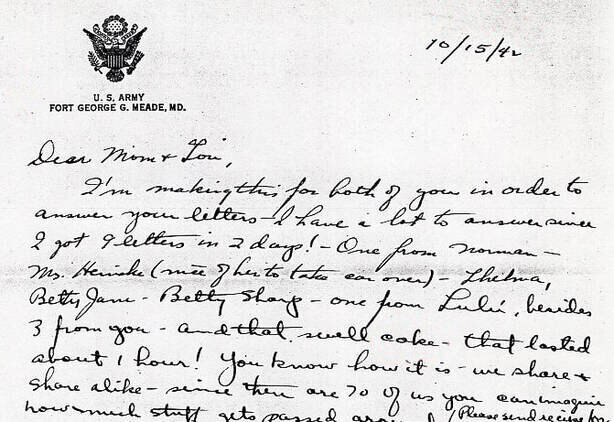 10/15/42
U. S. ARMY
FORT GEORGE G. MEADE, MD.
Dear Mom & Lou,
I'm making this for both of you in order to
answer your letters - I have a lot to answer since
I got 9 letters in 2 days! - One from Norman -
Mrs. Heincke (nice of her to take car over) - Thelma,
Betty Jane - Betty Sharp - one from Lulu, besides
3 from you - and that swell cake - that lasted
about 1 hour! You know how it is - we share &
share alike - since there are 70 of us you can imagine
how much stuff gets passed around! (Please send recipe for